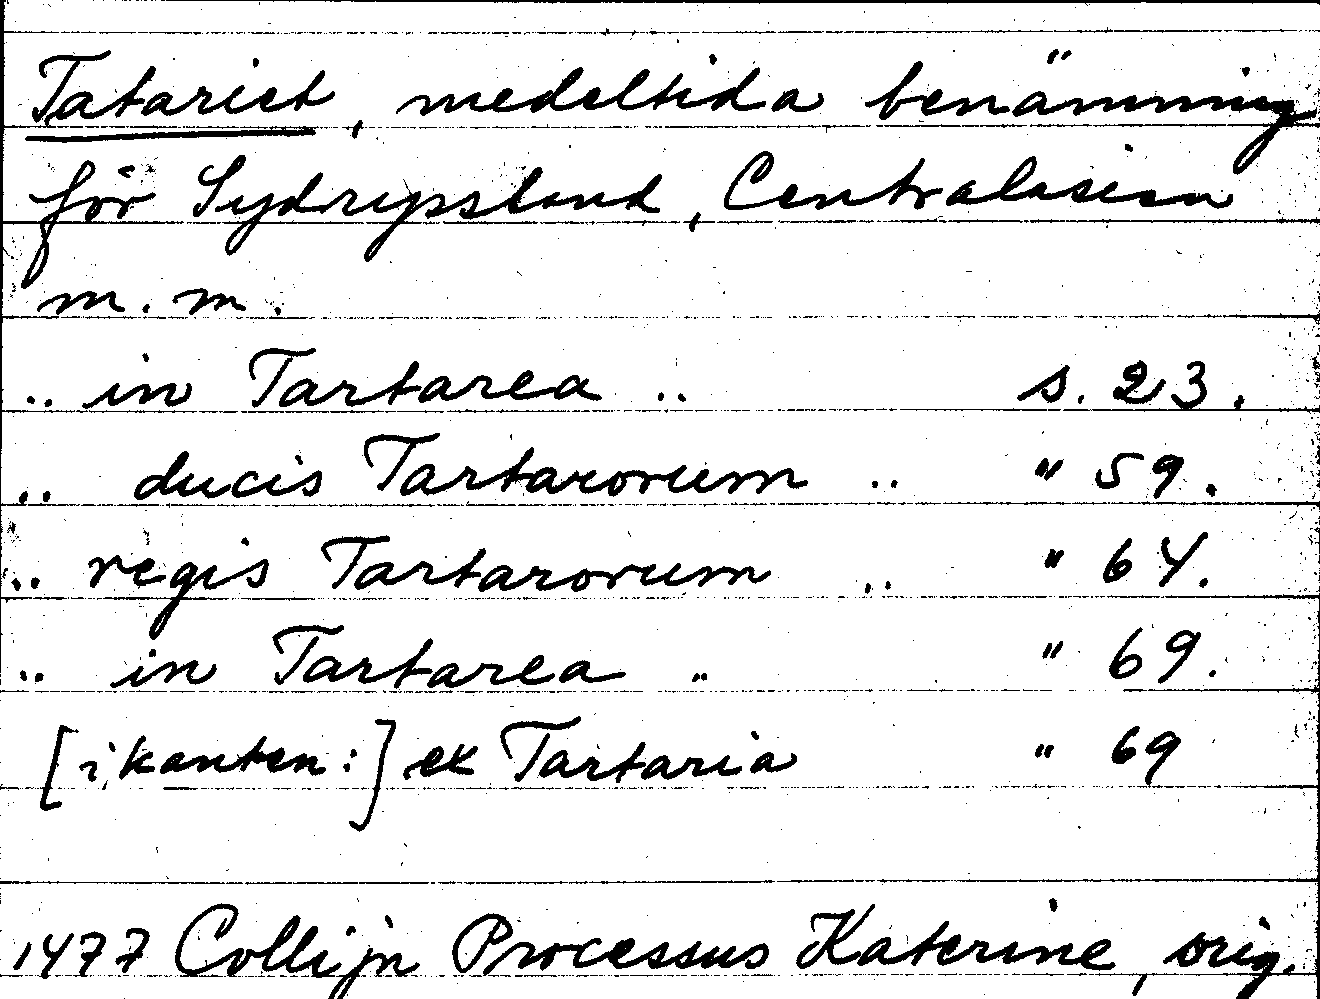 Tatariet, medeltida benämning
för Sydryssland, Centralasien
m. m.
.. in Tartarea .. s. 23.
.. ducis Tartarorum .. " 59.
.. regis Tartarorum .. " 64.
.. in Tartarea .. " 69.
[i kanten:] ex Tartaria " 69
1477 Collijn Processus Katerine, orig.